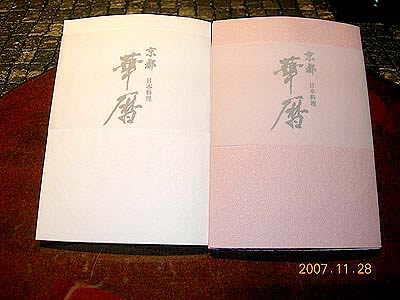 京都
華暦
日本料理
京都
華暦
日本料理
2007.11.28